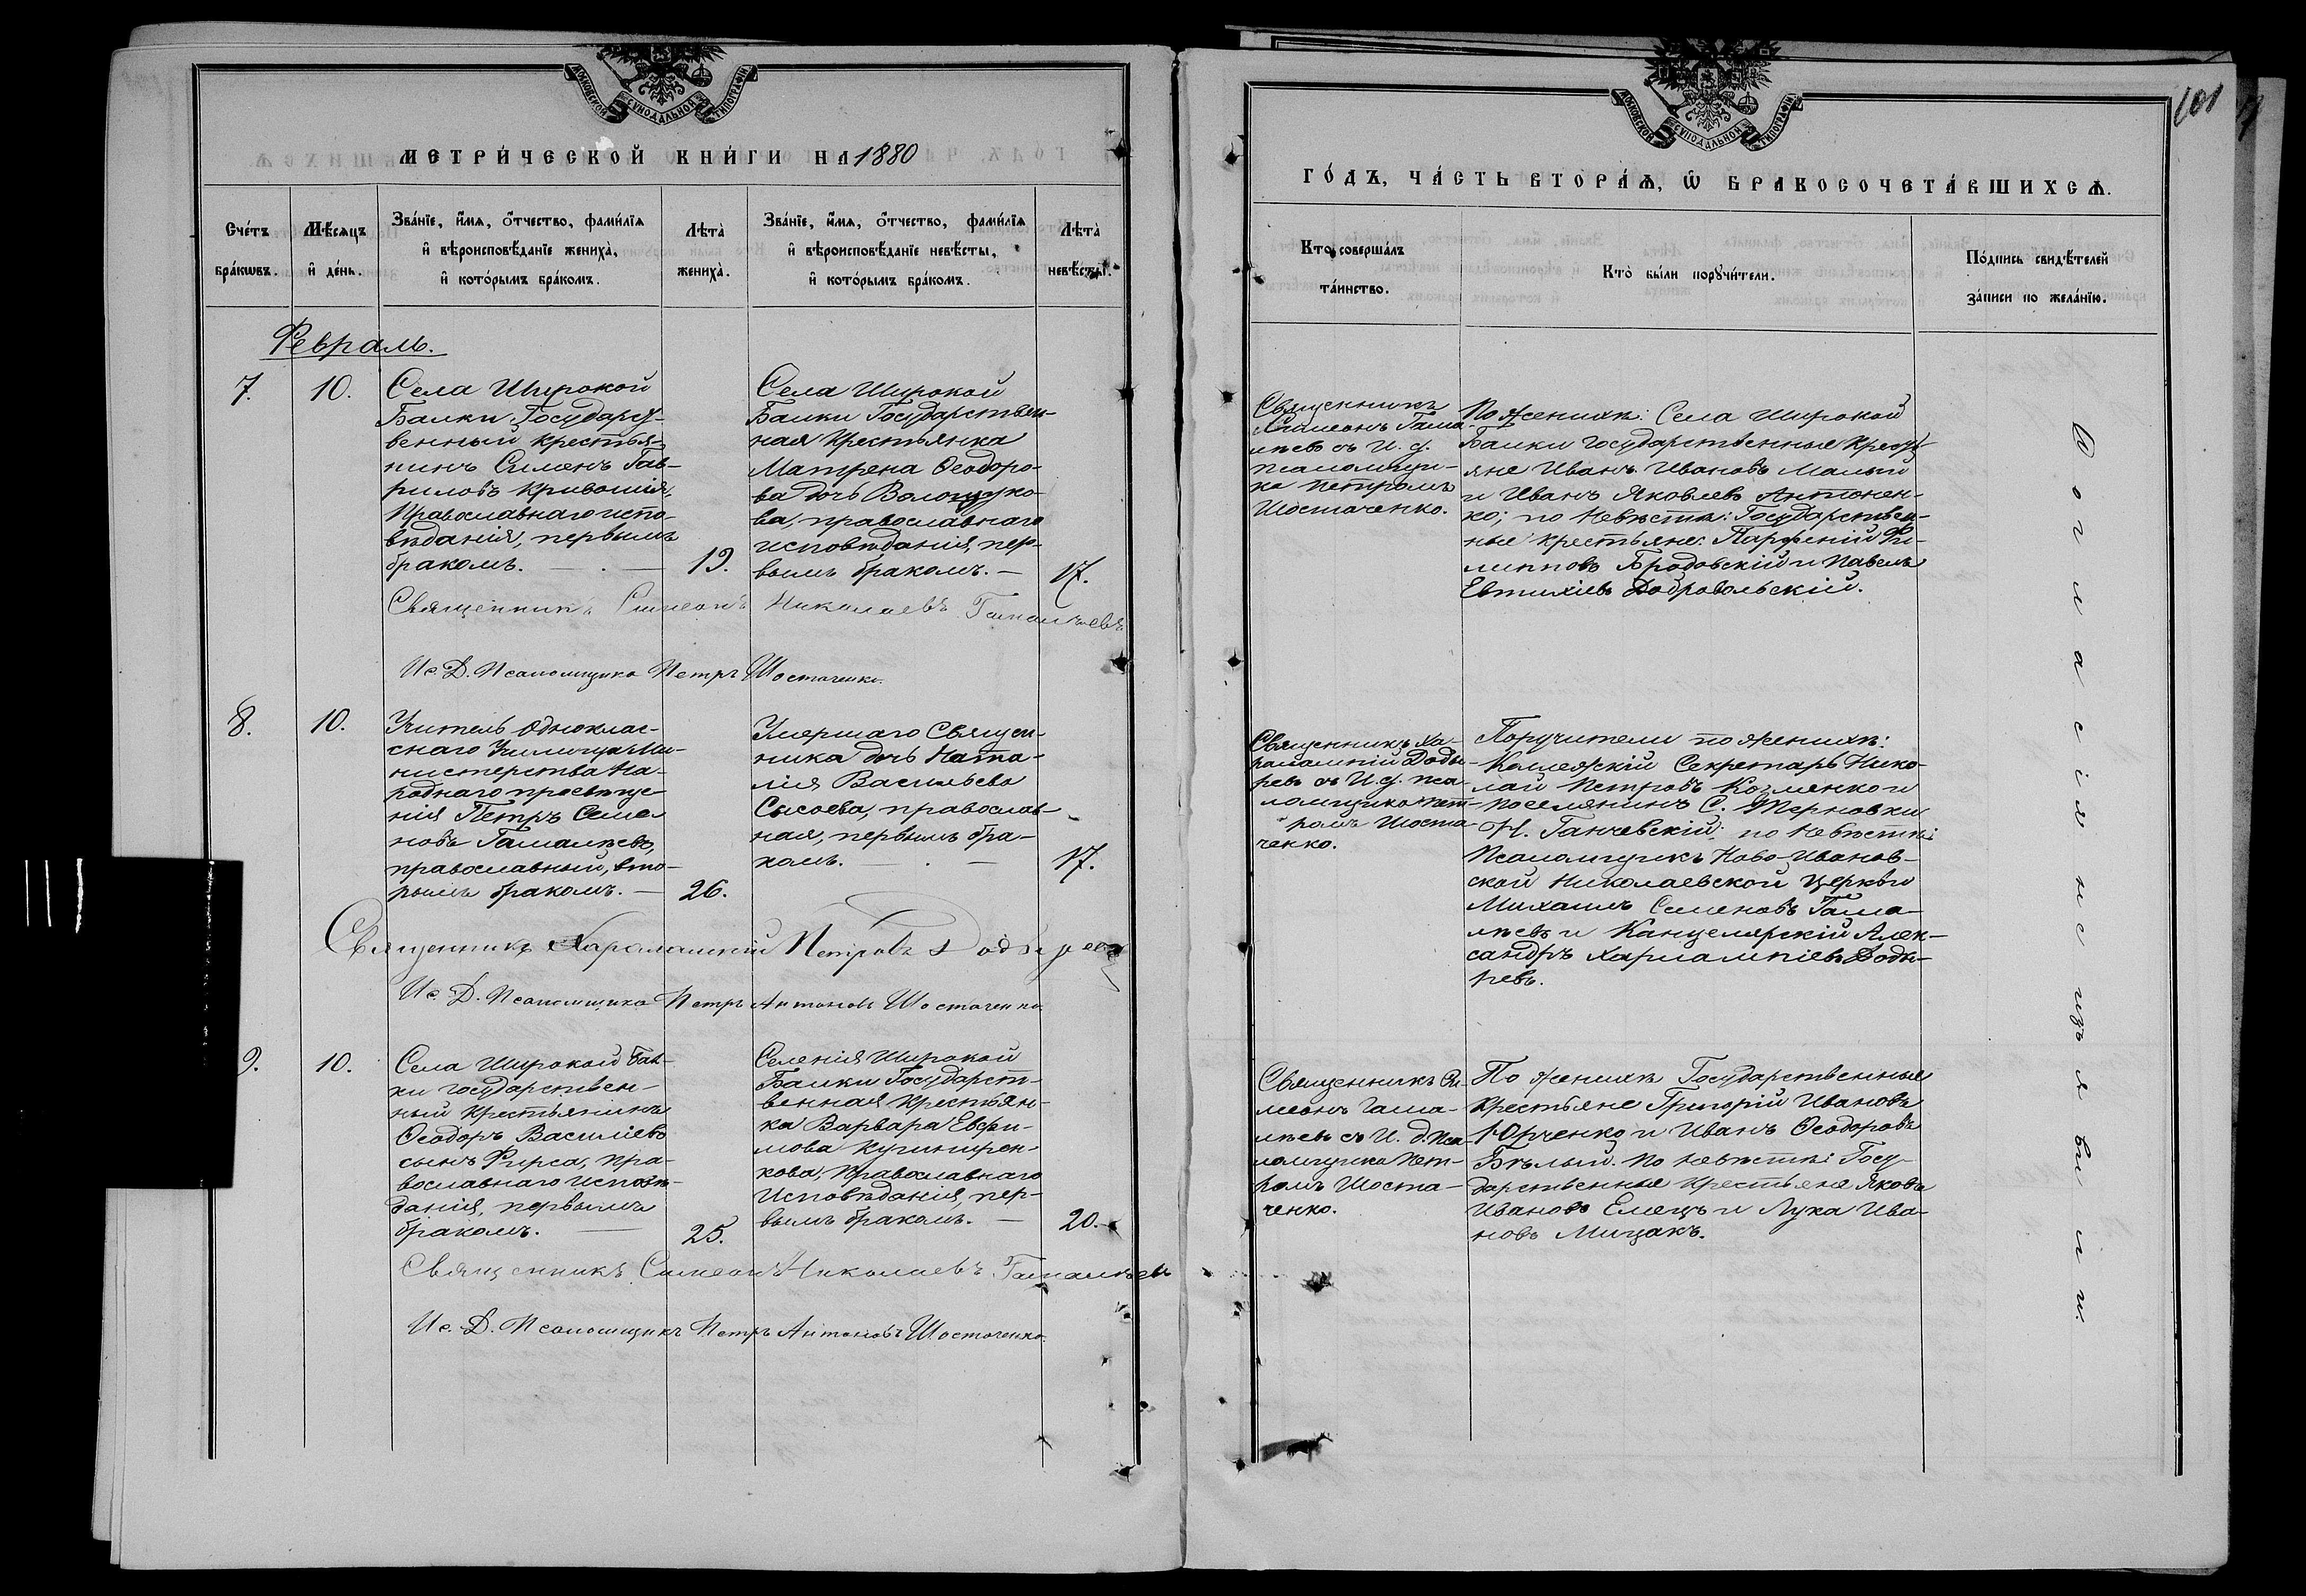 МОСКОВСКОЙ СѴНОДАЛЬНОЙ ТИПОГРАФІИ
МЕТРИ́ЧЕСКОЙ КНИ́ГИ НА 1880
Сче́тъ бра́кωвъ.
Мѣ́сяцъ и҆ де́нь.
Зва́нїе, и҆́мѧ, ѻ҆́тчество, фами́лїѧ
и҆ вѣроисповѣ́данїе жениха̀,
и҆ кото́рымъ бра́комъ.
Лѣта̀
жениха̀.
Зва́нїе, и҆́мѧ, ѻ҆́тчество, фами́лїѧ
и҆ вѣроисповѣ́данїе невѣ́сты,
и҆ кото́рымъ бра́комъ.
Лѣта̀
невѣ́сты.
Февраль.
7.
10.
Села Широкой
Балки Государст-
венный крестья-
нинъ Сименъ Гав-
риловъ Кривошія,
Православнаго испо-
вѣданія, первымъ
бракомъ.
19.
Села Широкой
Балки Государствен-
ная Крестьянка
Матрена Ѳеодоро-
ва дочь
ва, православнаго
исповѣданія, пер-
вымъ бракомъ.
17.
Священникъ Симеонъ Николаевъ Гамалѣевъ
Ис. Д. Псаломщика Петръ Шостаченко.
8.
10.
Учитель одноклас-
снаго Училища Ми-
нистерства На-
роднаго просвѣще-
нія Петръ Семе-
новъ Гамалѣевъ,
православный, вто-
рымъ бракомъ.
26.
Умершаго Священ-
ника дочь Ната-
лія Васильева
Сысоева, православ-
ная, первымъ бра-
комъ.
17.
Священникъ Харалампій Петровъ Додыревъ
Ис. Д. Псаломщика Петръ Антоновъ Шостаченко.
9.
10.
Села Широкой Бал-
ки государствен-
ный крестьянинъ
Ѳеодоръ Василіевъ
сынъ Фирса, пра-
вославнаго исповѣ-
данія, первымъ
бракомъ.
25.
Селенія Широкой
Балки Государст-
венная крестьян-
ка Варвара Евфи-
мова
кова, православнаго
Исповѣданія, пер-
вымъ бракомъ.
20.
Священникъ Симеонъ Николаевъ Гамалѣевъ
Ис. Д. Псаломщика Петръ Антоновъ Шостаченко.
101
МОСКОВСКОЙ СѴНОДАЛЬНОЙ ТИПОГРАФІИ
ГО́ДЪ, ЧА́СТЬ ВТОРА́Ѧ, Ѡ҆ БРАКОСОЧЕТА́ВШИХСѦ.
Кто̀ соверша́лъ
та́инство.
Кто̀ бы́ли порꙋчи́тели.
По́дпись свидѣ́телей
за́писи по жела́нїю.
Священникъ
Симеонъ Гама-
лѣевъ съ И. д.
псаломщи-
ка Петромъ
Шостаченко.
По Женихѣ: Села Широкой
Балки государственные Кресть-
яне Иванъ Ивановъ Малый
и Иванъ Яковлевъ Антонен-
ко; по Невѣстѣ: Государствен-
ные крестьяне: Парфеній Фи-
липповъ Бродовскій и Павелъ
Евтихіевъ Добровольскій.
Священникъ Ха-
ралампій Доды-
ревъ съ И. д. пса-
ломщика Пет-
ромъ Шоста-
ченко.
Поручители по Женихѣ:
Коллежскій Секретарь Нико-
лай Петровъ Козленко и
поселянинъ С. Терновки
Н. Ганчевскій: по Невѣстѣ:
Псаломщикъ Ново-Иванов-
ской Николаевской Церкви
Михаилъ Семеновъ Гама-
лѣевъ и Канцелярскій Алек-
сандръ Харлампіевъ Доды-
ревъ.
Священникъ Си-
меонъ Гама-
лѣевъ съ И. д. пса-
ломщика Пет-
ромъ Шоста-
ченко.
По Женихѣ Государственные
крестьяне Григорій Ивановъ
Юрченко и Иванъ Ѳеодоровъ
Бѣлый. По Невѣстѣ: Госу-
дарственные крестьяне Яковъ
Ивановъ Елецъ и Лука Ива-
новъ Мицакъ.